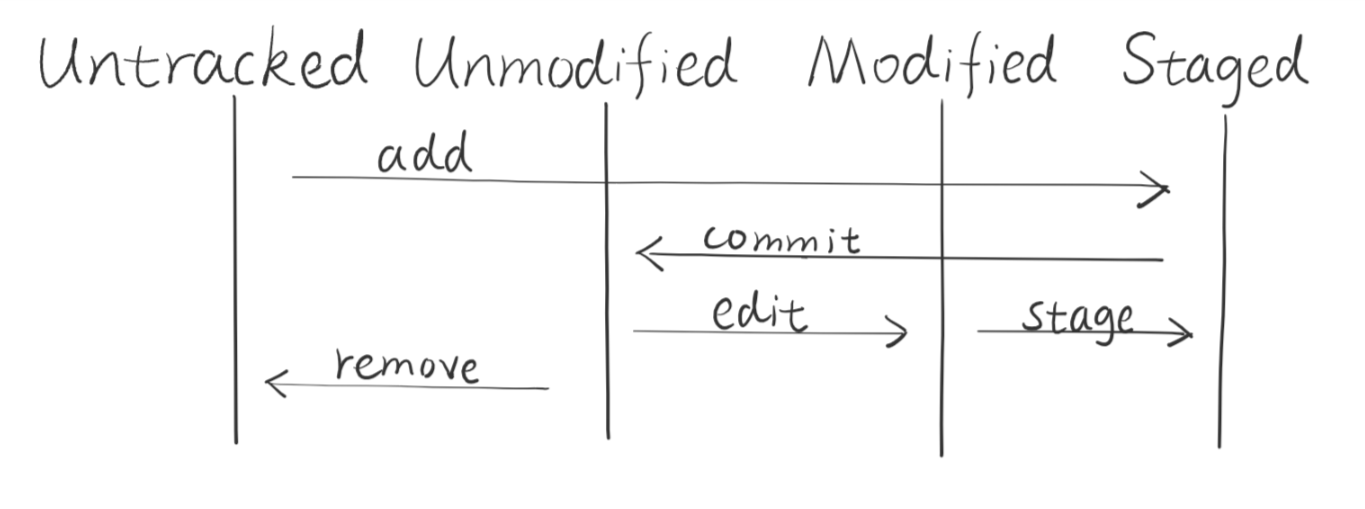 Untracked Unmodified Modified Staged
add
commit
edit stage
remove